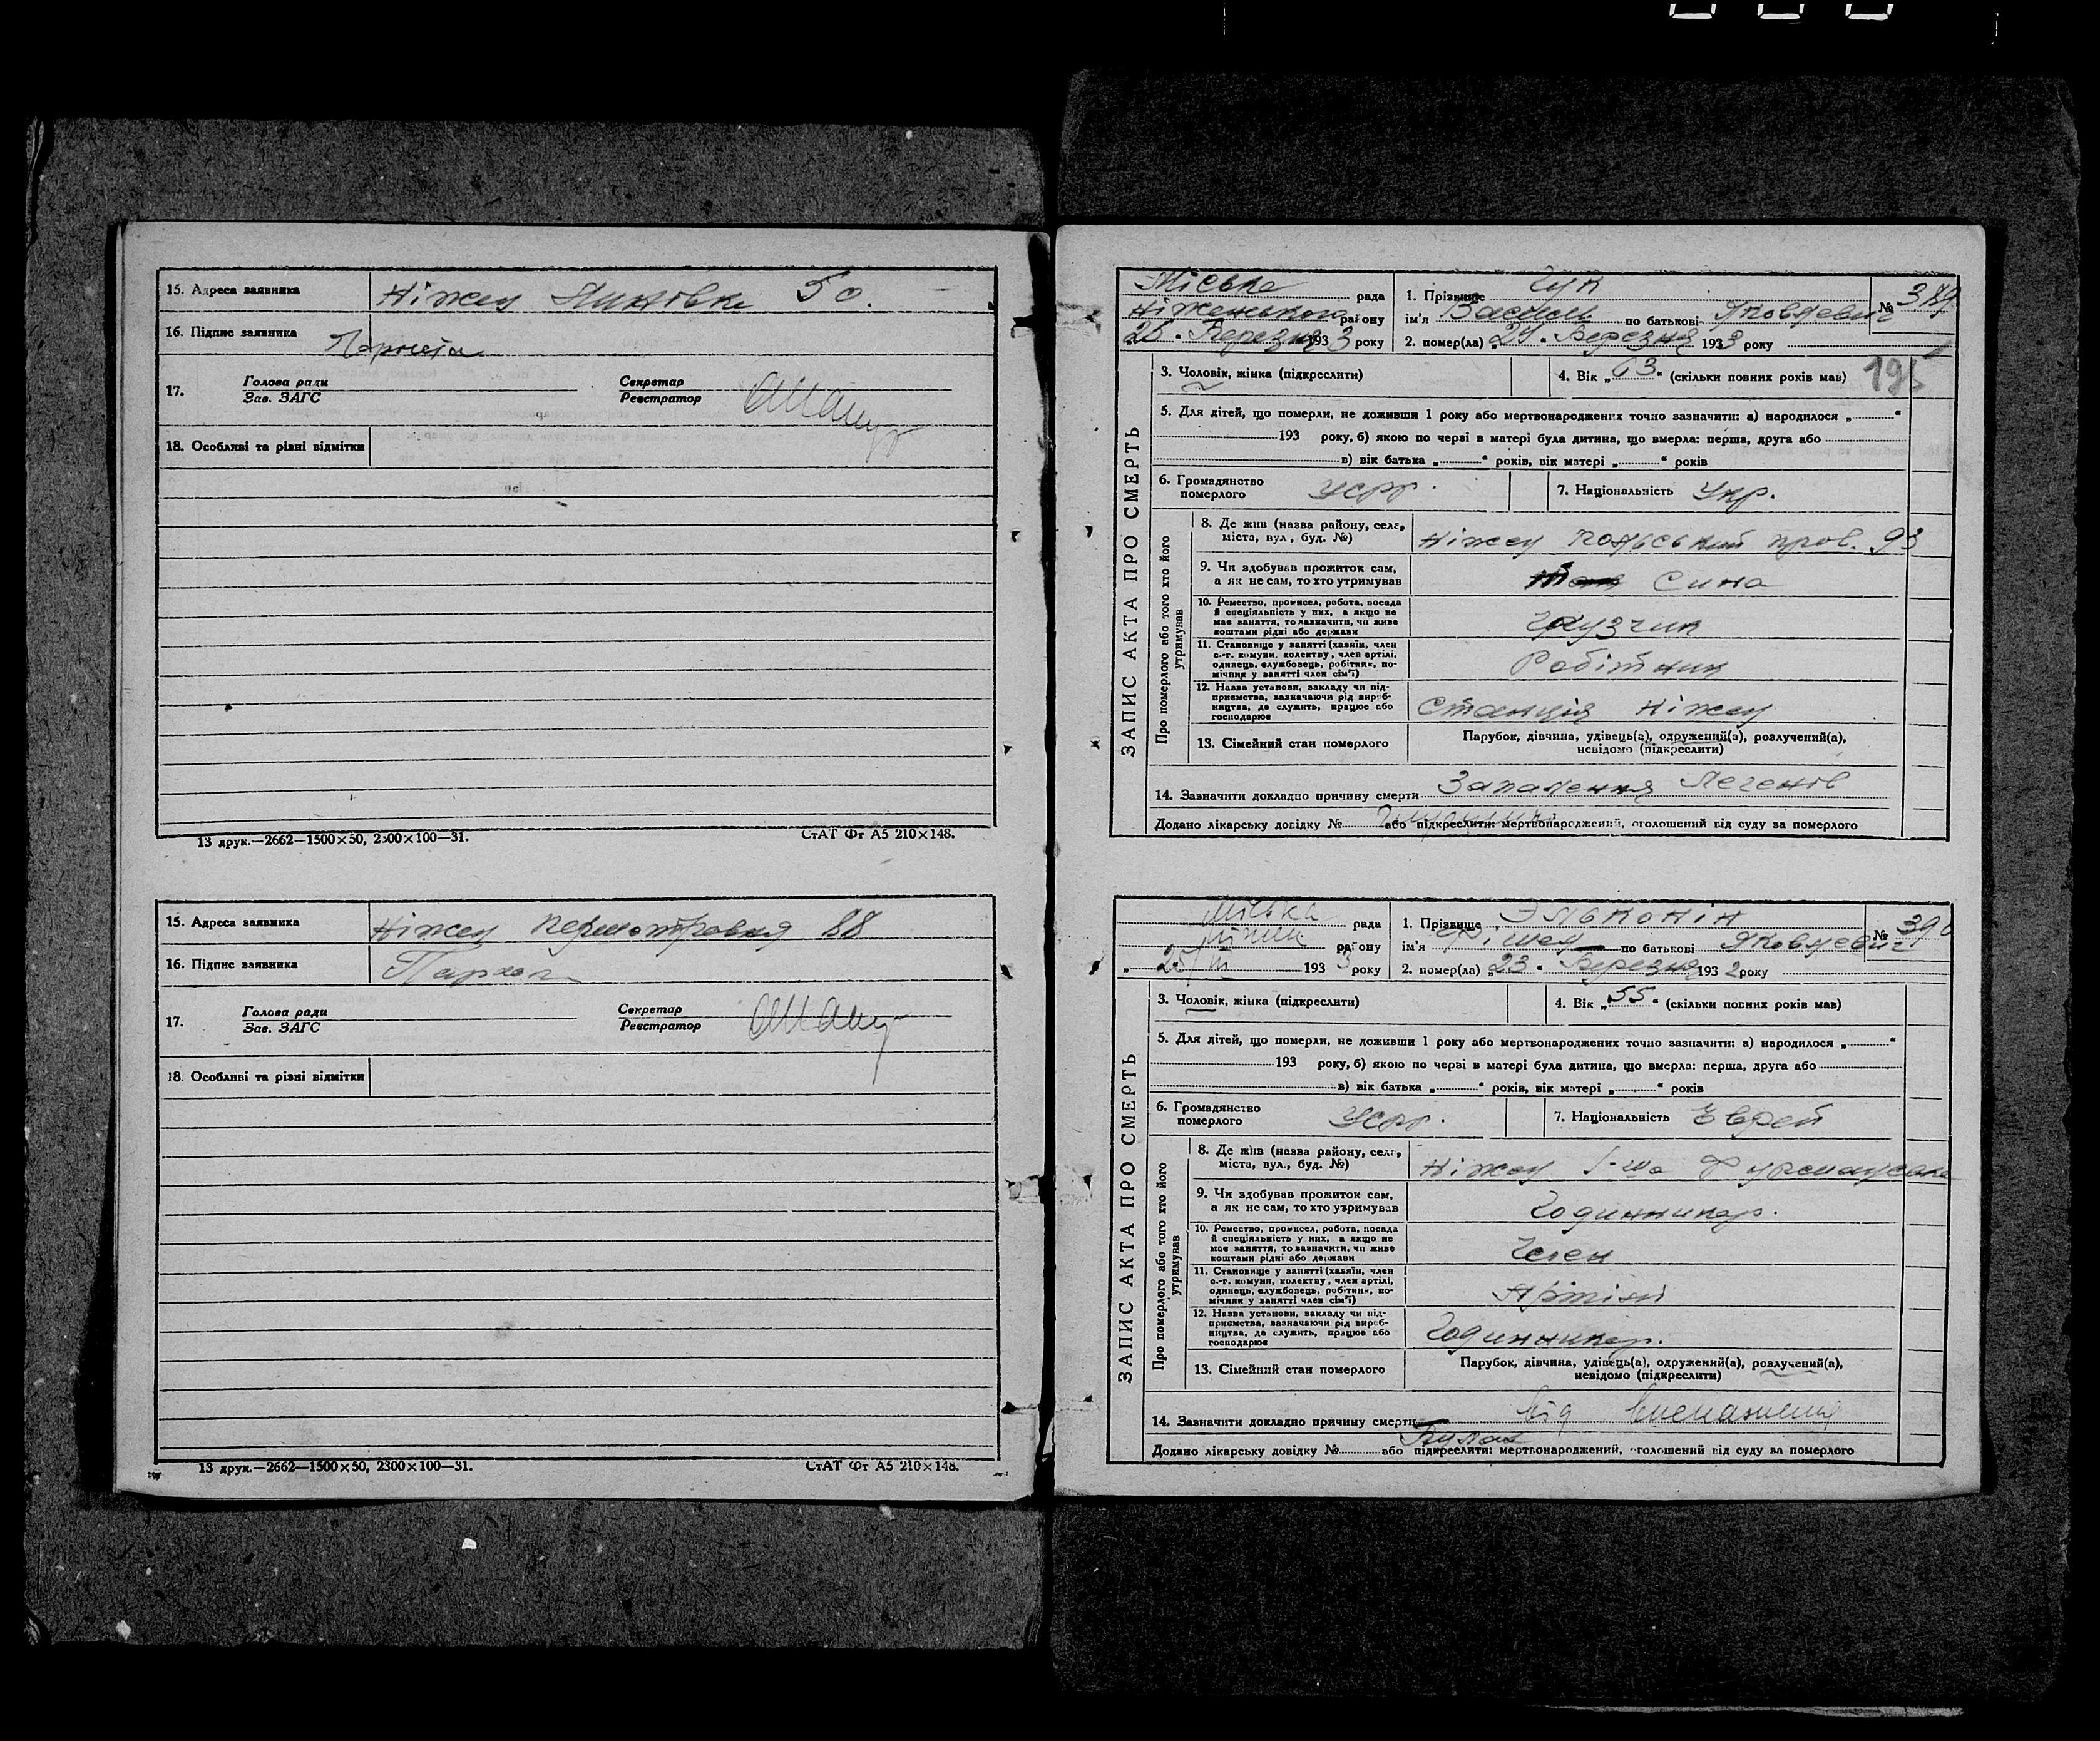 15. Адреса заявника Ніжен Синявка 50.
16. Підпис заявника
17. Голова ради Секретар
Зав. ЗАГС Реєстратор
18. Особливі та різні відмітки
13 друк.—2662—1500×50, 2300×100—31. СтАТ Фт А5 210×148.
15. Адреса заявника Ніжен 88
16. Підпис заявника
17. Голова ради Секретар
Зав. ЗАГС Реєстратор
18. Особливі та різні відмітки
13 друк.—2662—1500×50, 2300×100—31. СтАТ Фт А5 210×148.
ЗАПИС АКТА ПРО СМЕРТЬ
Міська рада
Ніженського району
25. Березня 1933 року
1. Прізвище Гук № 389
ім'я Василь по батькові Яковлевич
2. помер(ла) „ 24. Березня 1933 року
195
3. Чоловік, жінка (підкреслити) 4. Вік „63“ (скільки повних років мав)
5. Для дітей, що померли, не доживши 1 року або мертвонароджених точно зазначити: а) народилося „ “
193 року, б) якою по черзі в матері була дитина, що вмерла: перша, друга або
в) вік батька „ “ років, вік матері „ “ років
6. Громадянство померлого УСРР. 7. Національність Укр.
Про померлого або того хто його утримував
8. Де жив (назва району, села, міста, вул., буд. №) Ніжен пров. 93
9. Чи здобував прожиток сам, а як не сам, то хто утримував Сина
10. Ремество, промисел, робота, посада й спеціяльність у них, а якщо не має заняття, то зазначити, чи живе коштами рідні або держави Грузчик
11. Становище у занятті (хазяїн, член с.-г. комуни, колективу, член артілі, одинець, службовець, робітник, помічник у занятті член сім'ї) Робітник
12. Назва установи, закладу чи підприємства, зазначаючи рід виробництва, де служить, працює або господарює Станція Ніжен
13. Сімейний стан померлого Парубок, дівчина, удівець(а), одружений(а), розлучений(а),
невідомо (підкреслити)
14. Зазначити докладно причину смерти Запалення Легенів
Додано лікарську довідку № або підкреслити: мертвонароджений, оголошений від суду за померлого
ЗАПИС АКТА ПРО СМЕРТЬ
Міська рада
Ніжен району
„ 25/III 1933 року
1. Прізвище Эльконін № 390
ім'я Фішель по батькові Яковлевич
2. помер(ла) „23. Березня 1932 року
3. Чоловік, жінка (підкреслити) 4. Вік „55“ (скільки повних років мав)
5. Для дітей, що померли, не доживши 1 року або мертвонароджених точно зазначити: а) народилося „ “
193 року, б) якою по черзі в матері була дитина, що вмерла: перша, друга або
в) вік батька „ “ років, вік матері „ “ років
6. Громадянство померлого УСРР. 7. Національність Еврей
Про померлого або того хто його утримував
8. Де жив (назва району, села, міста, вул., буд. №) Ніжен 1-ша
9. Чи здобував прожиток сам, а як не сам, то хто утримував Годинникар.
10. Ремество, промисел, робота, посада й спеціяльність у них, а якщо не має заняття, то зазначити, чи живе коштами рідні або держави Член
11. Становище у занятті (хазяїн, член с.-г. комуни, колективу, член артілі, одинець, службовець, робітник, помічник у занятті член сім'ї) Артілі
12. Назва установи, закладу чи підприємства, зазначаючи рід виробництва, де служить, працює або господарює Годинникар.
13. Сімейний стан померлого Парубок, дівчина, удівець(а), одружений(а), розлучений(а),
невідомо (підкреслити)
14. Зазначити докладно причину смерти від
Додано лікарську довідку № або підкреслити: мертвонароджений, оголошений від суду за померлого